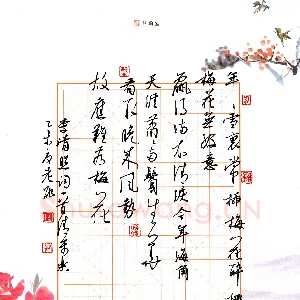 年〻雪裏常插梅花醉
梅花無好意
贏得滿衣清淚今年海角
天涯蕭〻兩鬢生華
看取晚來風勢
故應難看梅花
李清照詞一首清平樂
乙未